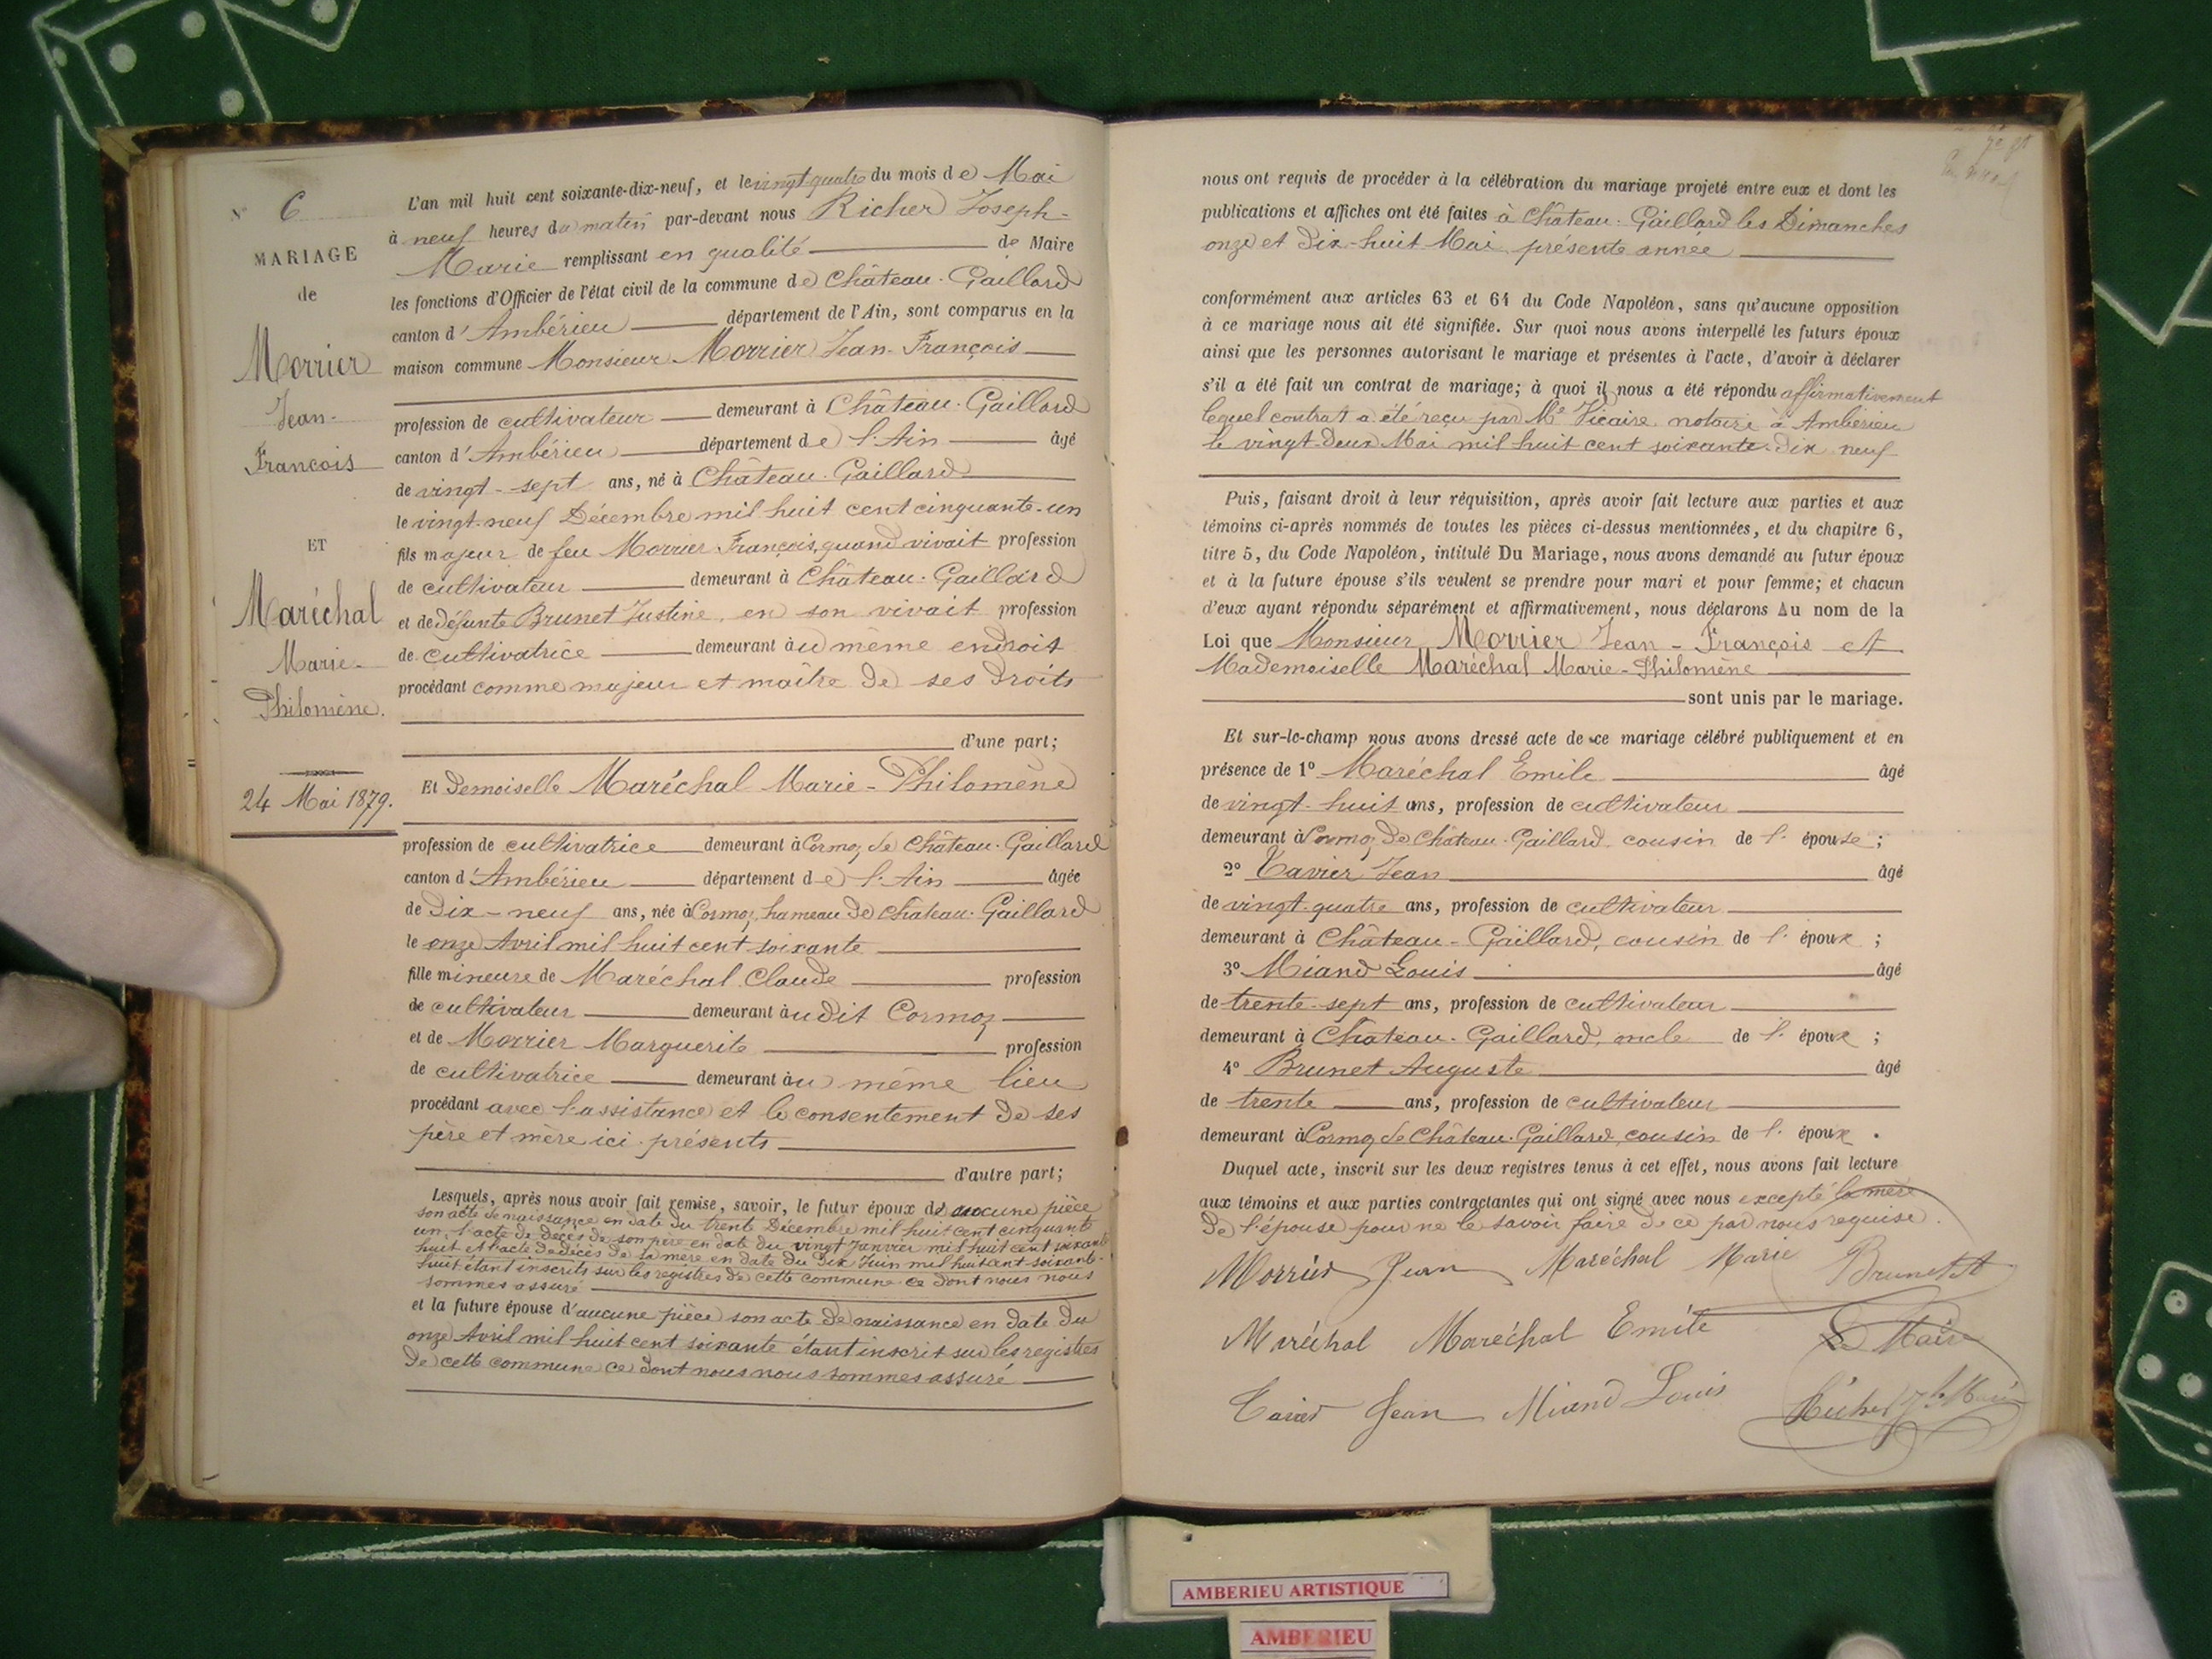 N° 6
MARIAGE
de
Morrier
Jean-
François
ET
Maréchal
Marie-
Philomène.
24 Mai 1879.
L'an mil huit cent soixante-dix-neuf, et le vingt quatre du mois de Mai
à neuf heures du matin par-devant nous Richer Joseph-
Marie remplissant en qualité de Maire
les fonctions d'Officier de l'état civil de la commune de Château-Gaillard
canton d'Ambérieu département de l'Ain, sont comparus en la
maison commune Monsieur Morrier Jean-François
profession de cultivateur demeurant à Château-Gaillard
canton d'Ambérieu département de l'Ain âgé
de vingt-sept ans, né à Château-Gaillard
le vingt-neuf Décembre mil huit cent cinquante-un
fils majeur de feu Morrier François, quand vivait profession
de cultivateur demeurant à Château-Gaillard
et de défunte Brunet Justine, en son vivait profession
de cultivatrice demeurant au même endroit
procédant comme majeur et maître de ses droits
d'une part;
Et Demoiselle Maréchal Marie-Philomène
profession de cultivatrice demeurant à Cormoz de Château-Gaillard
canton d'Ambérieu département de l'Ain âgée
de dix-neuf ans, née à Cormoz hameau de Château-Gaillard
le onze Avril mil huit cent soixante
fille mineure de Maréchal Claude profession
de cultivateur demeurant audit Cormoz
et de Morrier Marguerite profession
de cultivatrice demeurant au même lieu
procédant avec l'assistance et le consentement de ses
père et mère ici présents
d'autre part;
Lesquels, après nous avoir fait remise, savoir, le futur époux d'aucune pièce
son acte de naissance en date du trente Décembre mil huit cent cinquante
un, l'acte de décès de son père en date du vingt Janvier mil huit cent soixante
huit et l'acte de décès de sa mère en date du dix Juin mil huit cent soixante-
huit étant inscrits sur les registres de cette commune ce dont nous nous
sommes assuré
et la future épouse d'aucune pièce son acte de naissance en date du
onze Avril mil huit cent soixante étant inscrit sur les registres
de cette commune ce dont nous nous sommes assuré
nous ont requis de procéder à la célébration du mariage projeté entre eux et dont les
publications et affiches ont été faites à Château-Gaillard les Dimanches
onze et dix-huit Mai présente année
conformément aux articles 63 et 64 du Code Napoléon, sans qu'aucune opposition
à ce mariage nous ait été signifiée. Sur quoi nous avons interpellé les futurs époux
ainsi que les personnes autorisant le mariage et présentes à l'acte, d'avoir à déclarer
s'il a été fait un contrat de mariage; à quoi il nous a été répondu affirmativement
lequel contrat a été reçu par Me Vicaire notaire à Ambérieu
le vingt-deux Mai mil huit cent soixante-dix neuf
Puis, faisant droit à leur réquisition, après avoir fait lecture aux parties et aux
témoins ci-après nommés de toutes les pièces ci-dessus mentionnées, et du chapitre 6,
titre 5, du Code Napoléon, intitulé Du Mariage, nous avons demandé au futur époux
et à la future épouse s'ils veulent se prendre pour mari et pour femme; et chacun
d'eux ayant répondu séparément et affirmativement, nous déclarons Au nom de la
Loi que Monsieur Morrier Jean-François et
Mademoiselle Maréchal Marie-Philomène
sont unis par le mariage.
Et sur-le-champ nous avons dressé acte de ce mariage célébré publiquement et en
présence de 1° Maréchal Emile âgé
de vingt-huit ans, profession de cultivateur
demeurant à Cormoz de Château-Gaillard cousin de l'épouse;
2° Tavier Jean âgé
de vingt-quatre ans, profession de cultivateur
demeurant à Château-Gaillard, cousin de l'époux;
3° Miand Louis âgé
de trente-sept ans, profession de cultivateur
demeurant à Château-Gaillard, oncle de l'époux;
4° Brunet Auguste âgé
de trente ans, profession de cultivateur
demeurant à Cormoz de Château-Gaillard, cousin de l'époux.
Duquel acte, inscrit sur les deux registres tenus à cet effet, nous avons fait lecture
aux témoins et aux parties contractantes qui ont signé avec nous excepté la mère
de l'épouse pour ne le savoir faire de ce par nous requise.
Morrier Jean Maréchal Marie Brunet A
Maréchal Maréchal Emile Le Maire
Tavier Jean Miand Louis Richer Jh Marie
AMBERIEU ARTISTIQUE
AMBERIEU